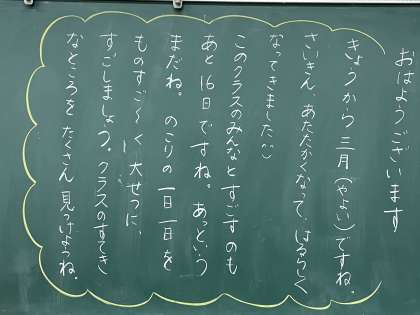 おはようございます
きょうから三月(やよい)ですね。
さいきん、あたたかくなって、はるらしく
なってきました(^^)
このクラスのみんなとすごすのも
あと16日ですね。あっという
まだね。 のこりの一日一日を
ものすご〜く大せつに、
すごしましょう。クラスのすてき
なところをたくさん見つけようね。